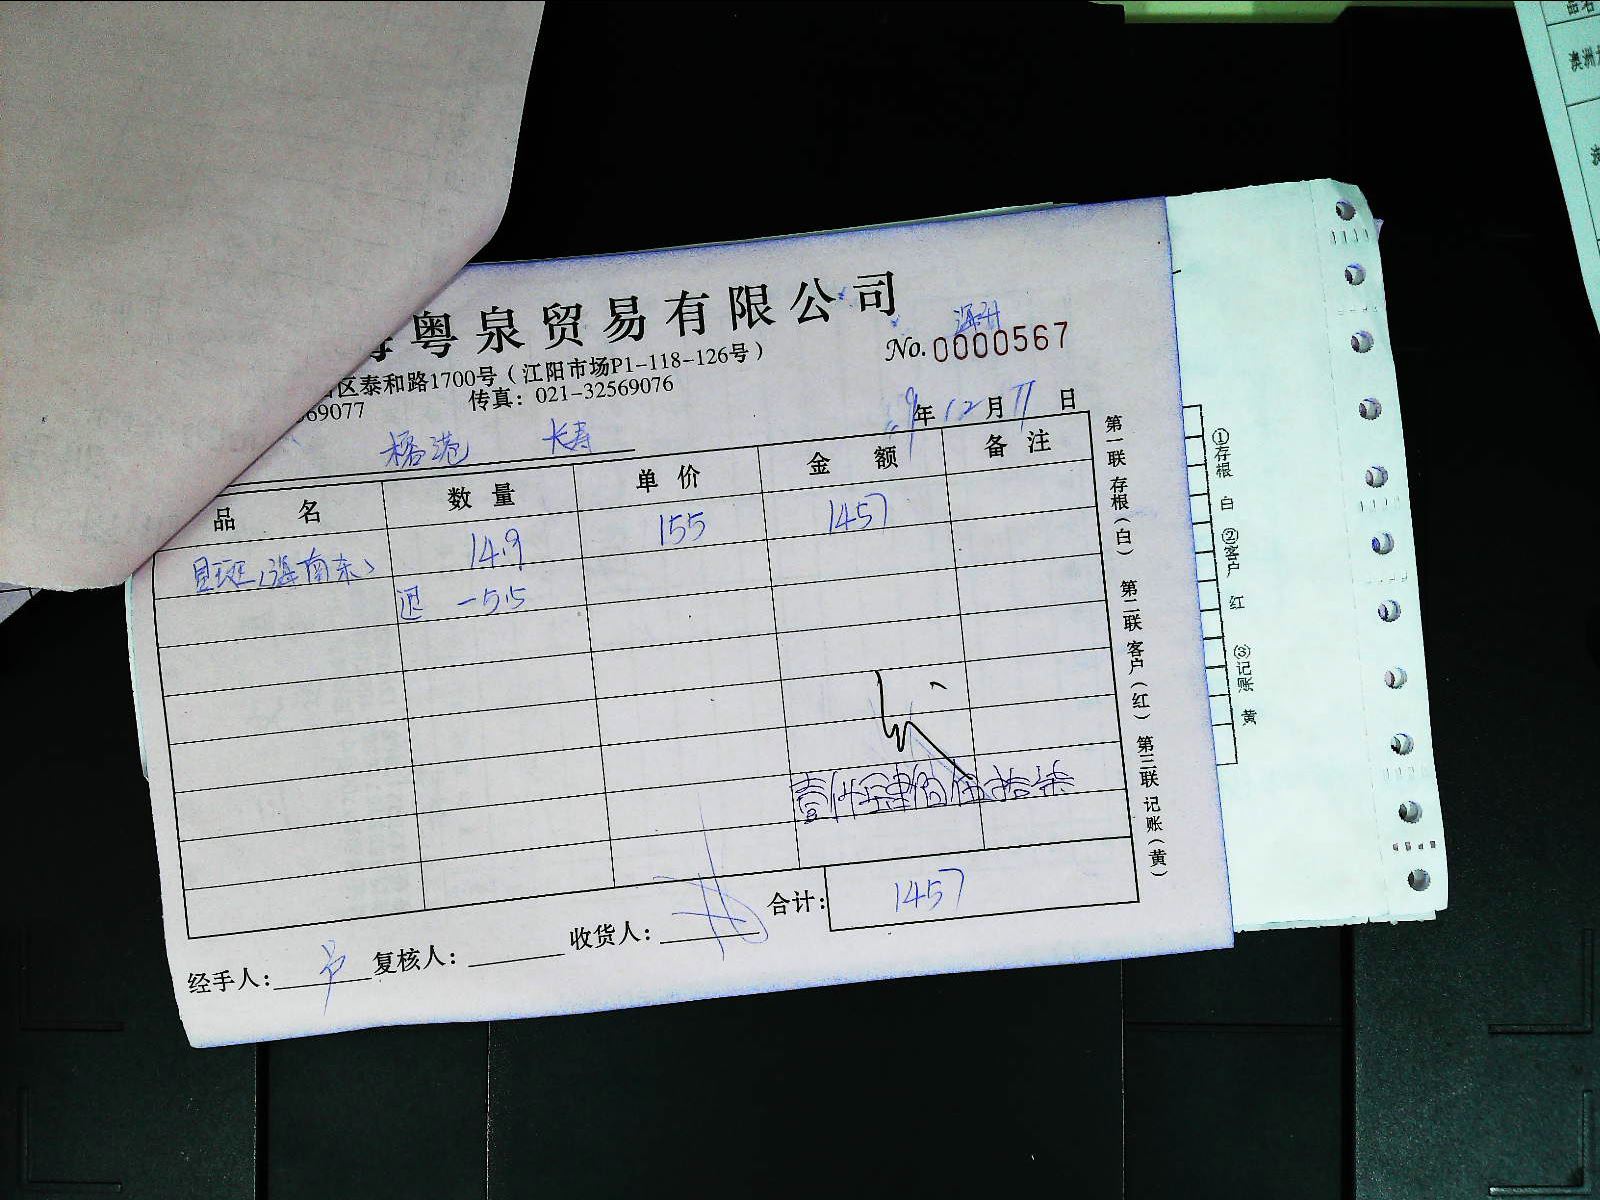 粤泉贸易有限公司
No. 0000567
区泰和路1700号（江阳市场P1-118-126号）
69077 传真：021-32569076
19年12月11日
港 长寿
品 名 数 量 单 价 金 额 备 注
斑（海南东） 14.9 155 1457
退 -5.5
壹仟肆佰伍拾柒
合计： 1457
经手人： 复核人： 收货人：
第一联 存根（白） 第二联 客户（红） 第三联 记账（黄）
①存根 白 ②客户 红 ③记账 黄
品名
澳洲